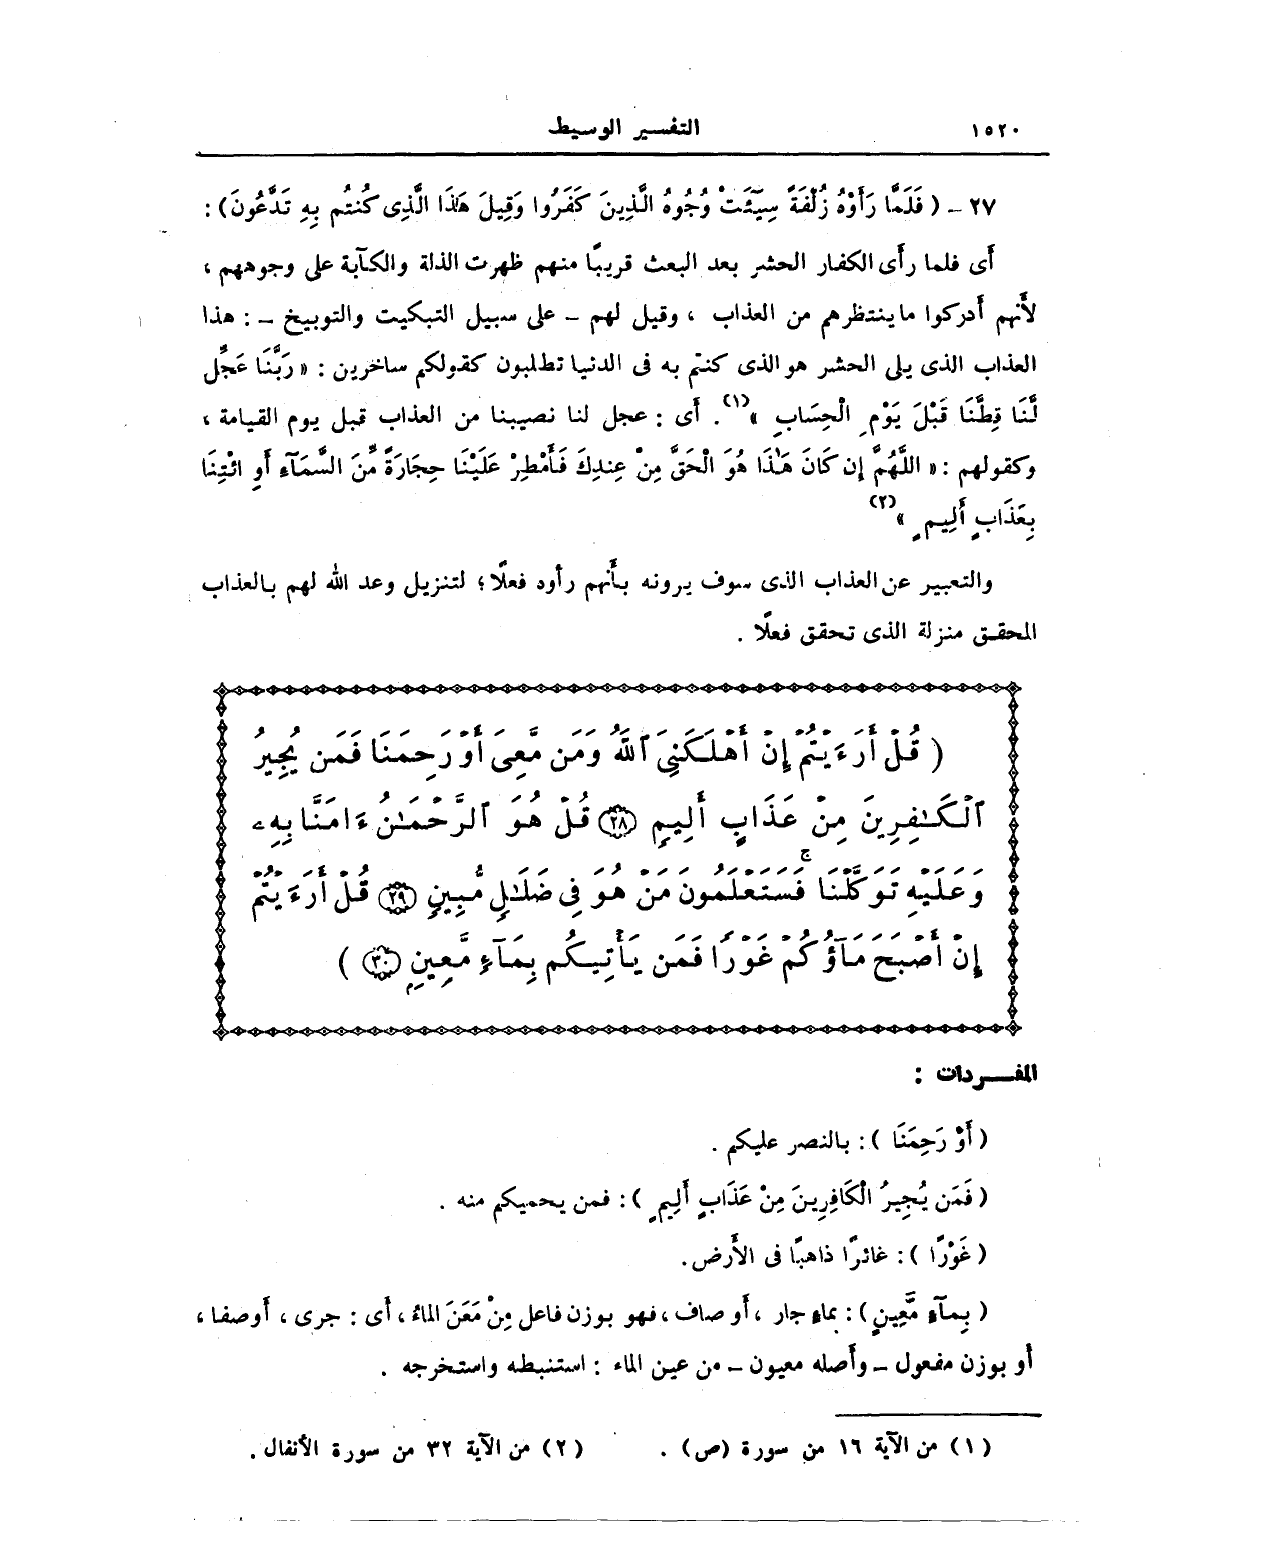 ١٥٢٠
التفسير الوسيط
٢٧ ـ ( فَلَمَّا رَأَوْهُ زُلْفَةً سِيٓئَتْ وُجُوهُ الَّذِينَ كَفَرُوا وَقِيلَ هَذَا الَّذِى كُنتُم بِهِ تَدَّعُونَ) :
أى فلما رأى الكفار الحشر بعد البعث قريبًا منهم ظهرت الذلة والكآبة على وجوههم ،
لأَنهم أَدركوا ما ينتظرهم من العذاب ، وقيل لهم ـ على سبيل التبكيت والتوبيخ ـ : هذا
العذاب الذى يلى الحشر هو الذى كنتم به فى الدنيا تطلبون كقولكم ساخرين : « رَبَّنَا عَجِّل
لَّنَا قِطَّنَا قَبْلَ يَوْمِ الْحِسَابِ »(١). أى : عجل لنا نصيبنا من العذاب قبل يوم القيامة ،
وكقولهم : « اللَّهُمَّ إِن كَانَ هَٰذَا هُوَ الْحَقَّ مِنْ عِندِكَ فَأَمْطِرْ عَلَيْنَا حِجَارَةً مِّنَ السَّمَآءِ أَوِ ائْتِنَا
بِعَذَابٍ أَلِيمٍ »(٢)
والتعبير عن العذاب الذى سوف يرونه بأَنهم رأوه فعلًا؛ لتنزيل وعد الله لهم بالعذاب
المحقق منزلة الذى تحقق فعلًا .
( قُلْ أَرَءَيْتُمْ إِنْ أَهْلَكَنِىَ ٱللَّهُ وَمَن مَّعِىَ أَوْ رَحِمَنَا فَمَن يُجِيرُ
ٱلْكَٰفِرِينَ مِنْ عَذَابٍ أَلِيمٍ ٢٨ قُلْ هُوَ ٱلرَّحْمَٰنُ ءَامَنَّا بِهِۦ
وَعَلَيْهِ تَوَكَّلْنَا ۚ فَسَتَعْلَمُونَ مَنْ هُوَ فِى ضَلَٰلٍ مُّبِينٍ ٢٩ قُلْ أَرَءَيْتُمْ
إِنْ أَصْبَحَ مَآؤُكُمْ غَوْرًا فَمَن يَأْتِيكُم بِمَآءٍ مَّعِينٍ ٣٠ )
المفـــردات :
( أَوْ رَحِمَنَا ) : بالنصر عليكم .
( فَمَن يُجِيرُ الْكَافِرِينَ مِنْ عَذَابٍ أَلِيمٍ ) : فمن يحميكم منه .
( غَوْرًا ) : غائرًا ذاهبًا فى الأَرض.
( بِمَآءٍ مَّعِينٍ ) : بماءٍ جار ، أَو صاف ، فهو بوزن فاعل مِنْ مَعَنَ الماءُ ، أَى : جرى ، أَو صفا ،
أَو بوزن مفعول ـ وأَصله معيون ـ من عين الماء : استنبطه واستخرجه .
(١) من الآية ١٦ من سورة (ص) .
(٢) من الآية ٣٢ من سورة الأنفال .